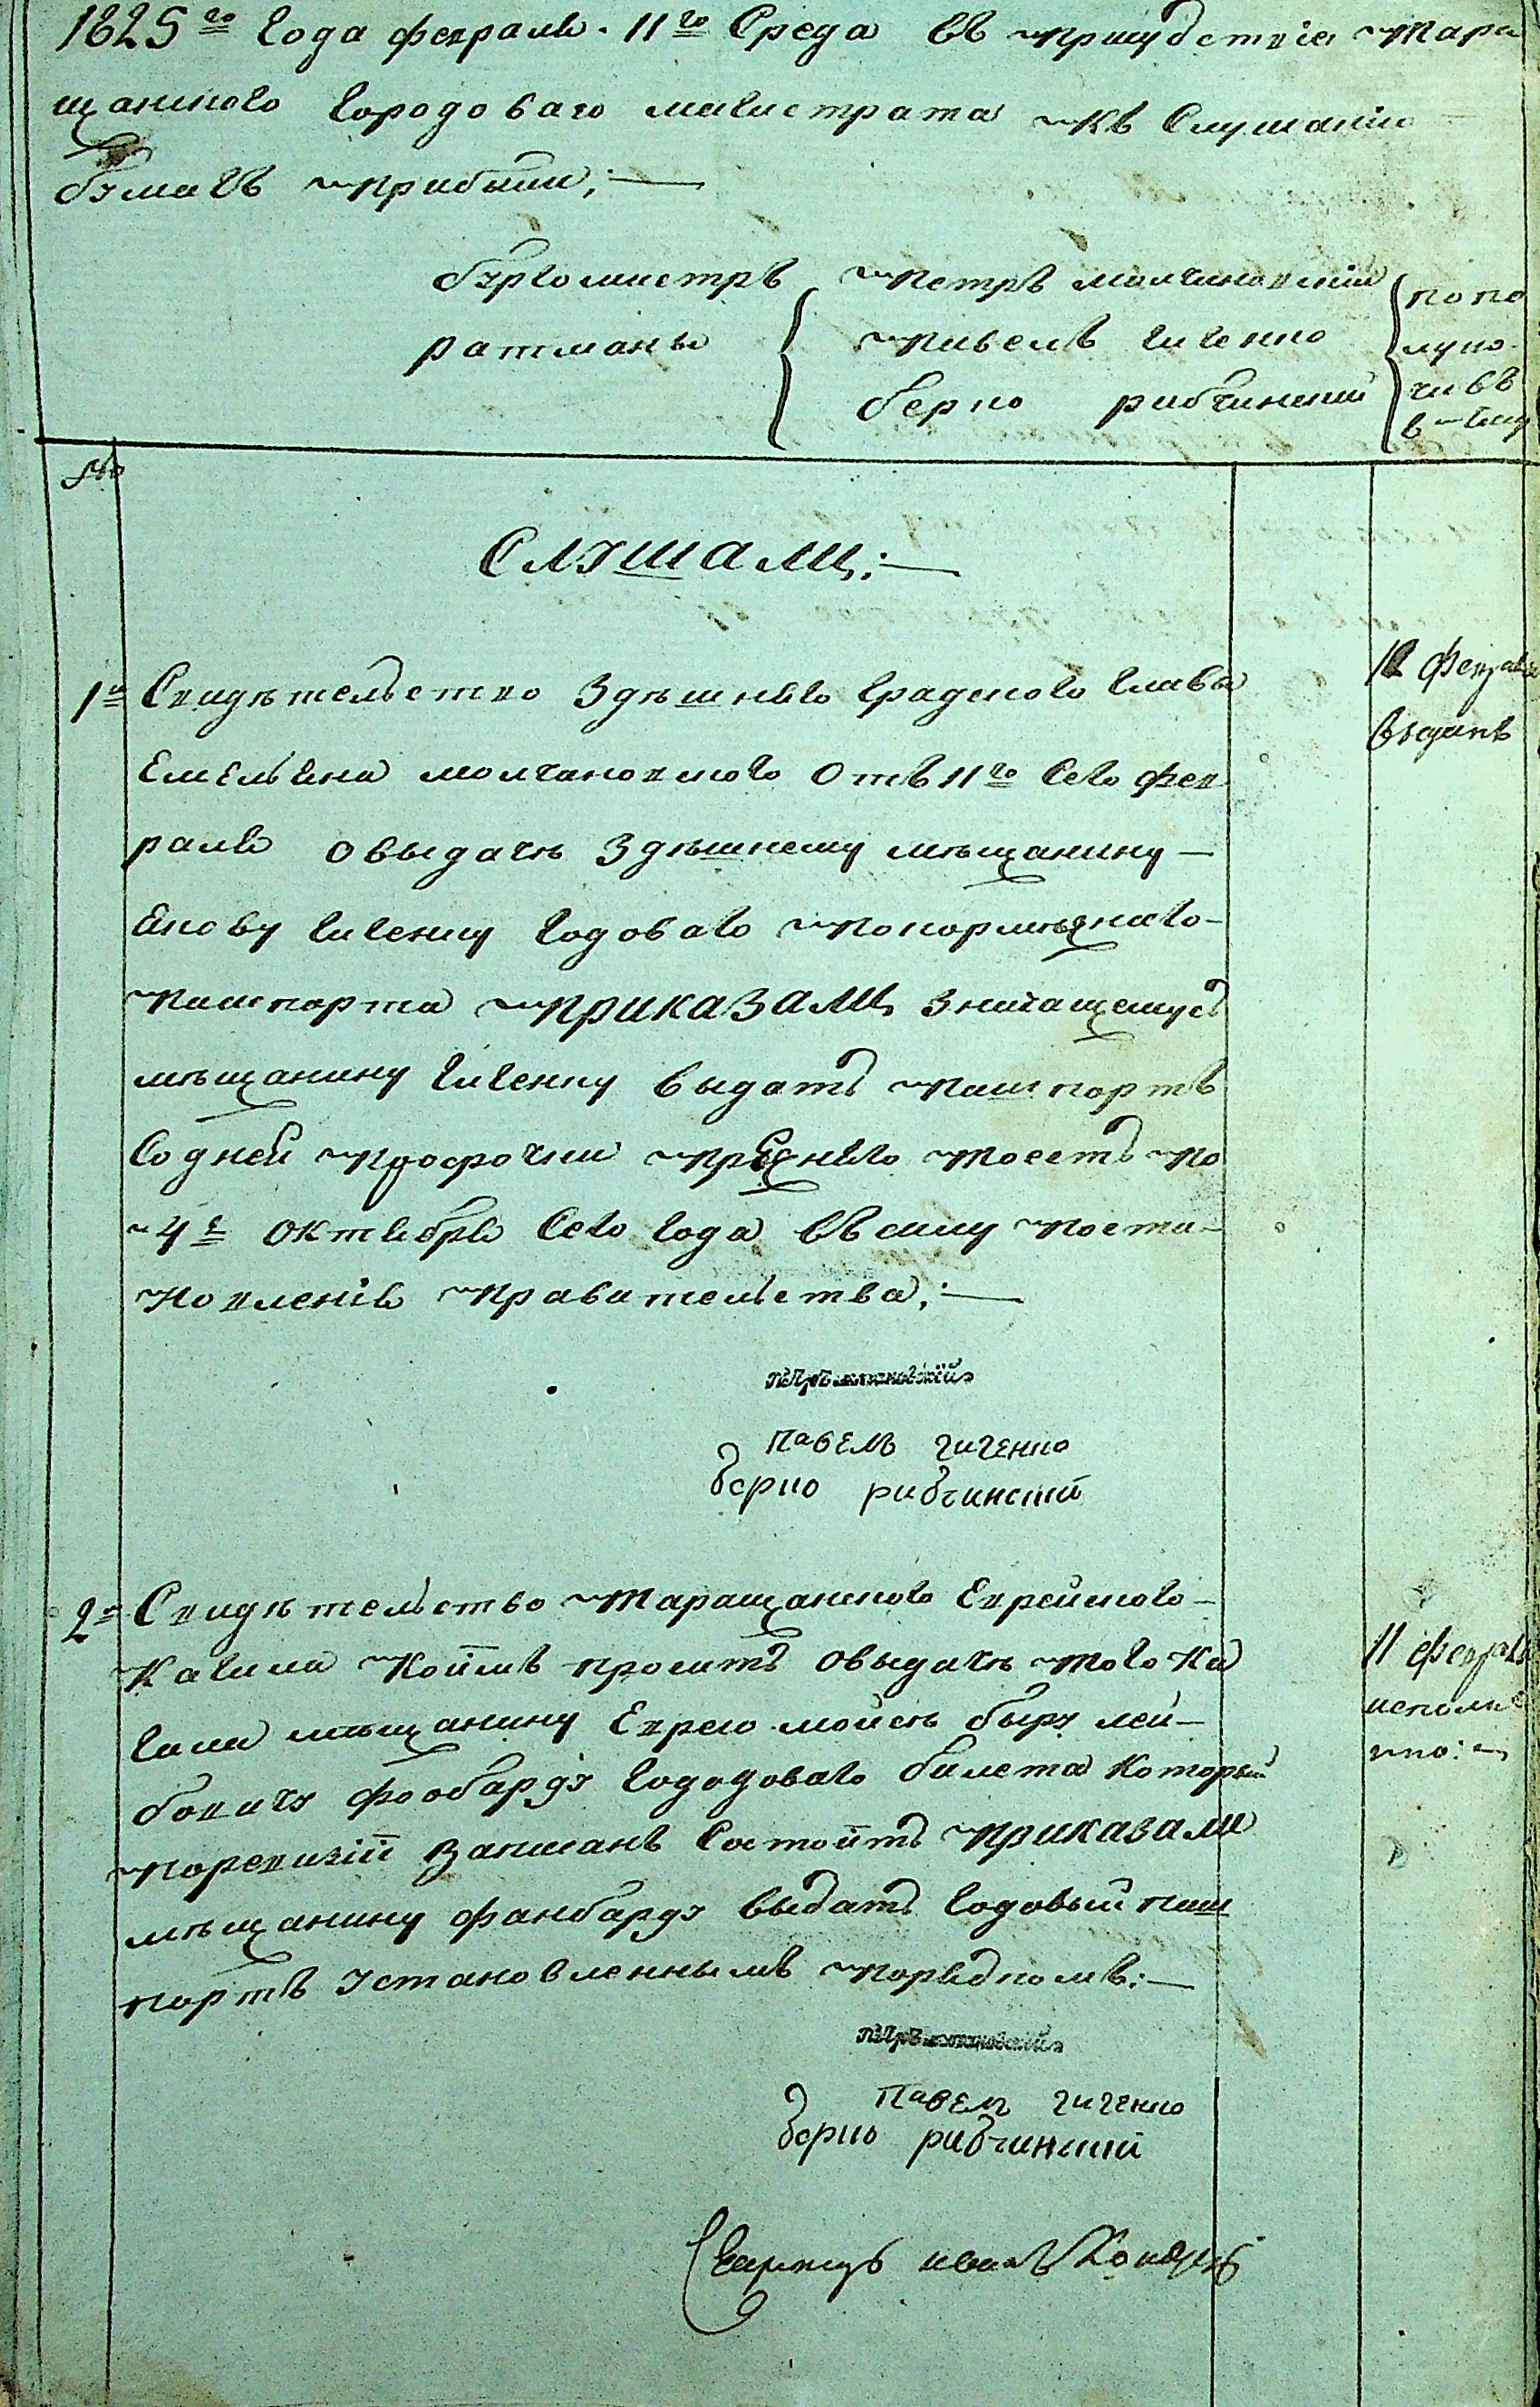 1825го Года февраля 11го Среда въ присудствіе Тара
щанского Городоваго магистрата къ Слушанію
бумагъ прибыли;
бургомистръ Петръ молчановскій
ратманы Павелъ гиченко
берко рибчинский
по по
луно
чи въ
№
Слушали:
1е Свидѣтельство Здѣшняго Градского Главы
Емельяна молчановского Отъ 11го Сего Фев
раля о выдачѣ Здѣшнему мѣщанину
Якову Гиченку Годоваго покормѣжнаго
пашпорта приказали, Значащемусь
мѣщанину Гиченку выдать пашпортъ
Со дней просрочки прежняго тоесть по
4е Октября Сего Года въ силу поста
новленія правительства;
12 Февраля
выданъ
Петръ молчановскій
Павелъ гиченко
берко рибчинский
2е Свидѣтельство Таращанского Еврейского
Кагала Коимъ проситъ о выдачѣ того Ка
гала мѣщанину Еврею мойсѣ быру лей
бовичу фообарду Гододоваго билета Который
по ревизіи Записанъ Состоитъ приказали
мѣщанину фанбарду выдать Годовый паш
портъ Установленнымъ порядкомъ:
11 февраля
исполне
нно:
Петръ молчановскій
Павелъ гиченко
берко рибчинский
иванъ